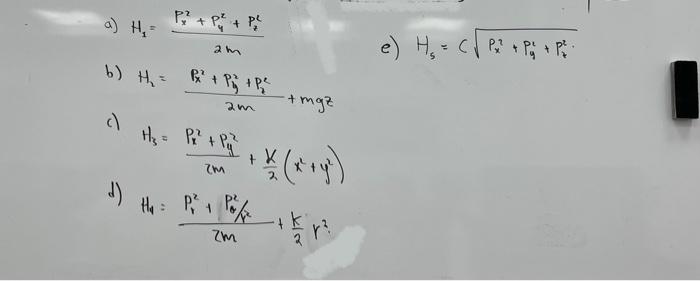 a) H₁ = (Pₓ² + P_y² + P_z²) / 2m
b) H₂ = (Pₓ² + P_y² + P_z²) / 2m + mgz
c) H₃ = (Pₓ² + P_y²) / 2m + K/2 (x² + y²)
d) H₄ = (P_r² + P_θ²/r²) / 2m + k/2 r²
e) H₅ = C √(Pₓ² + P_y² + P_z²)